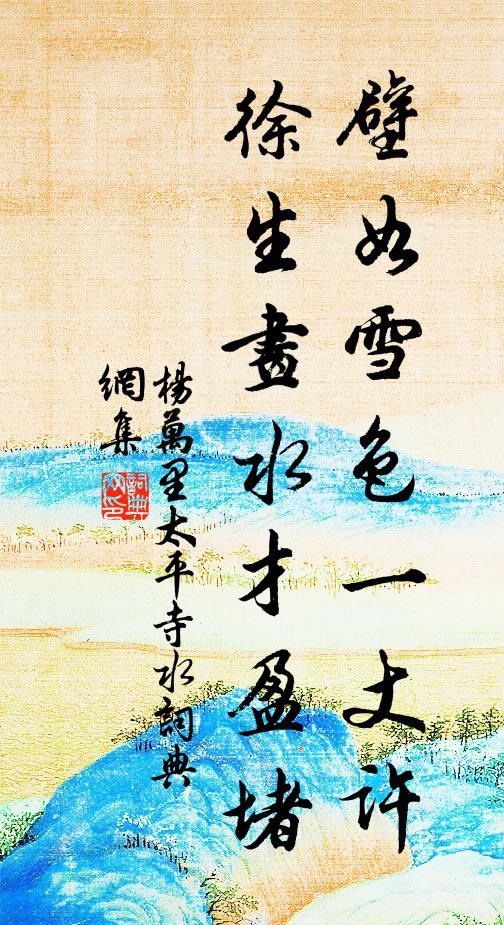 壁如雪色一丈許
徐生畫水才盈堵
楊萬里太平寺水詞典
網集
詞典
网印